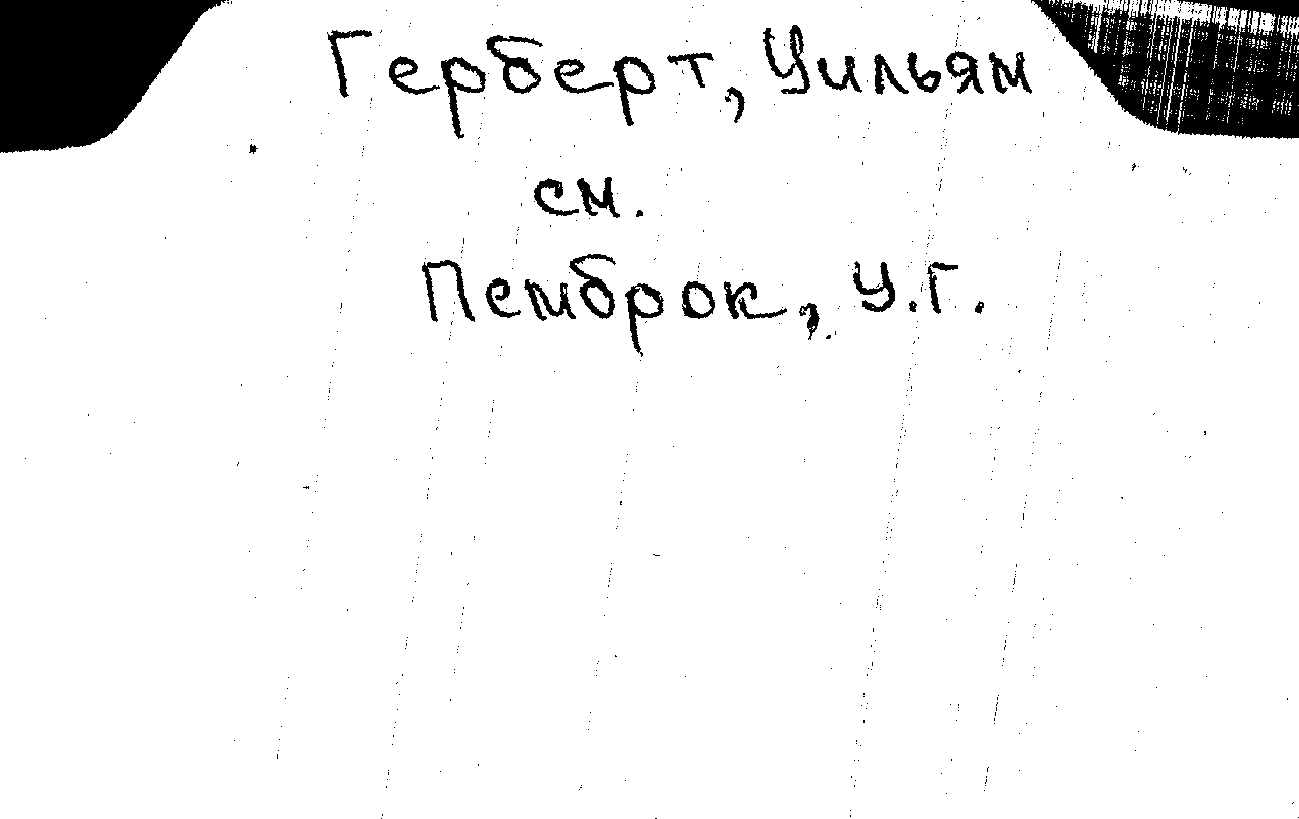 Герберт, Уильям
см.
Пемброк, У.Г.